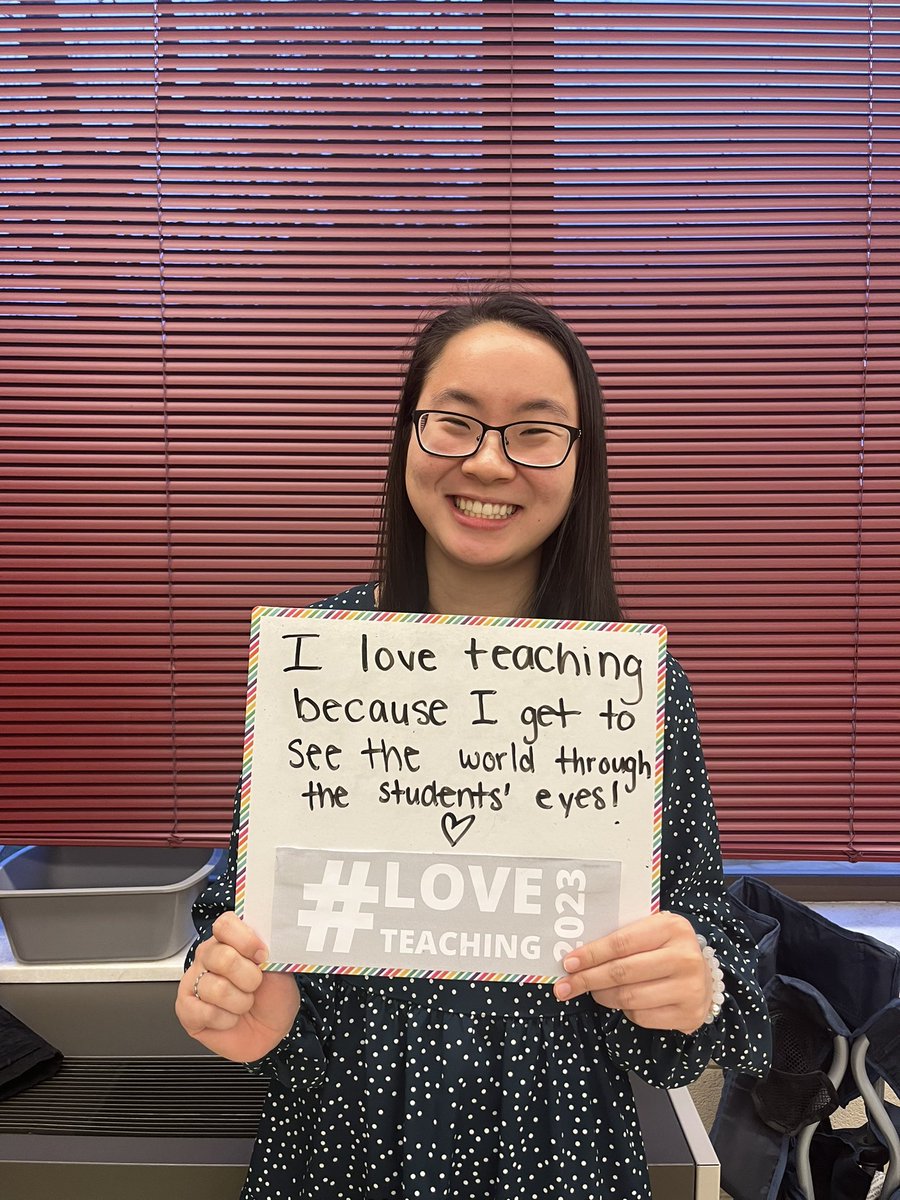 I love teaching
because I get to
see the world through
the students' eyes!
#LOVE
TEACHING
2023